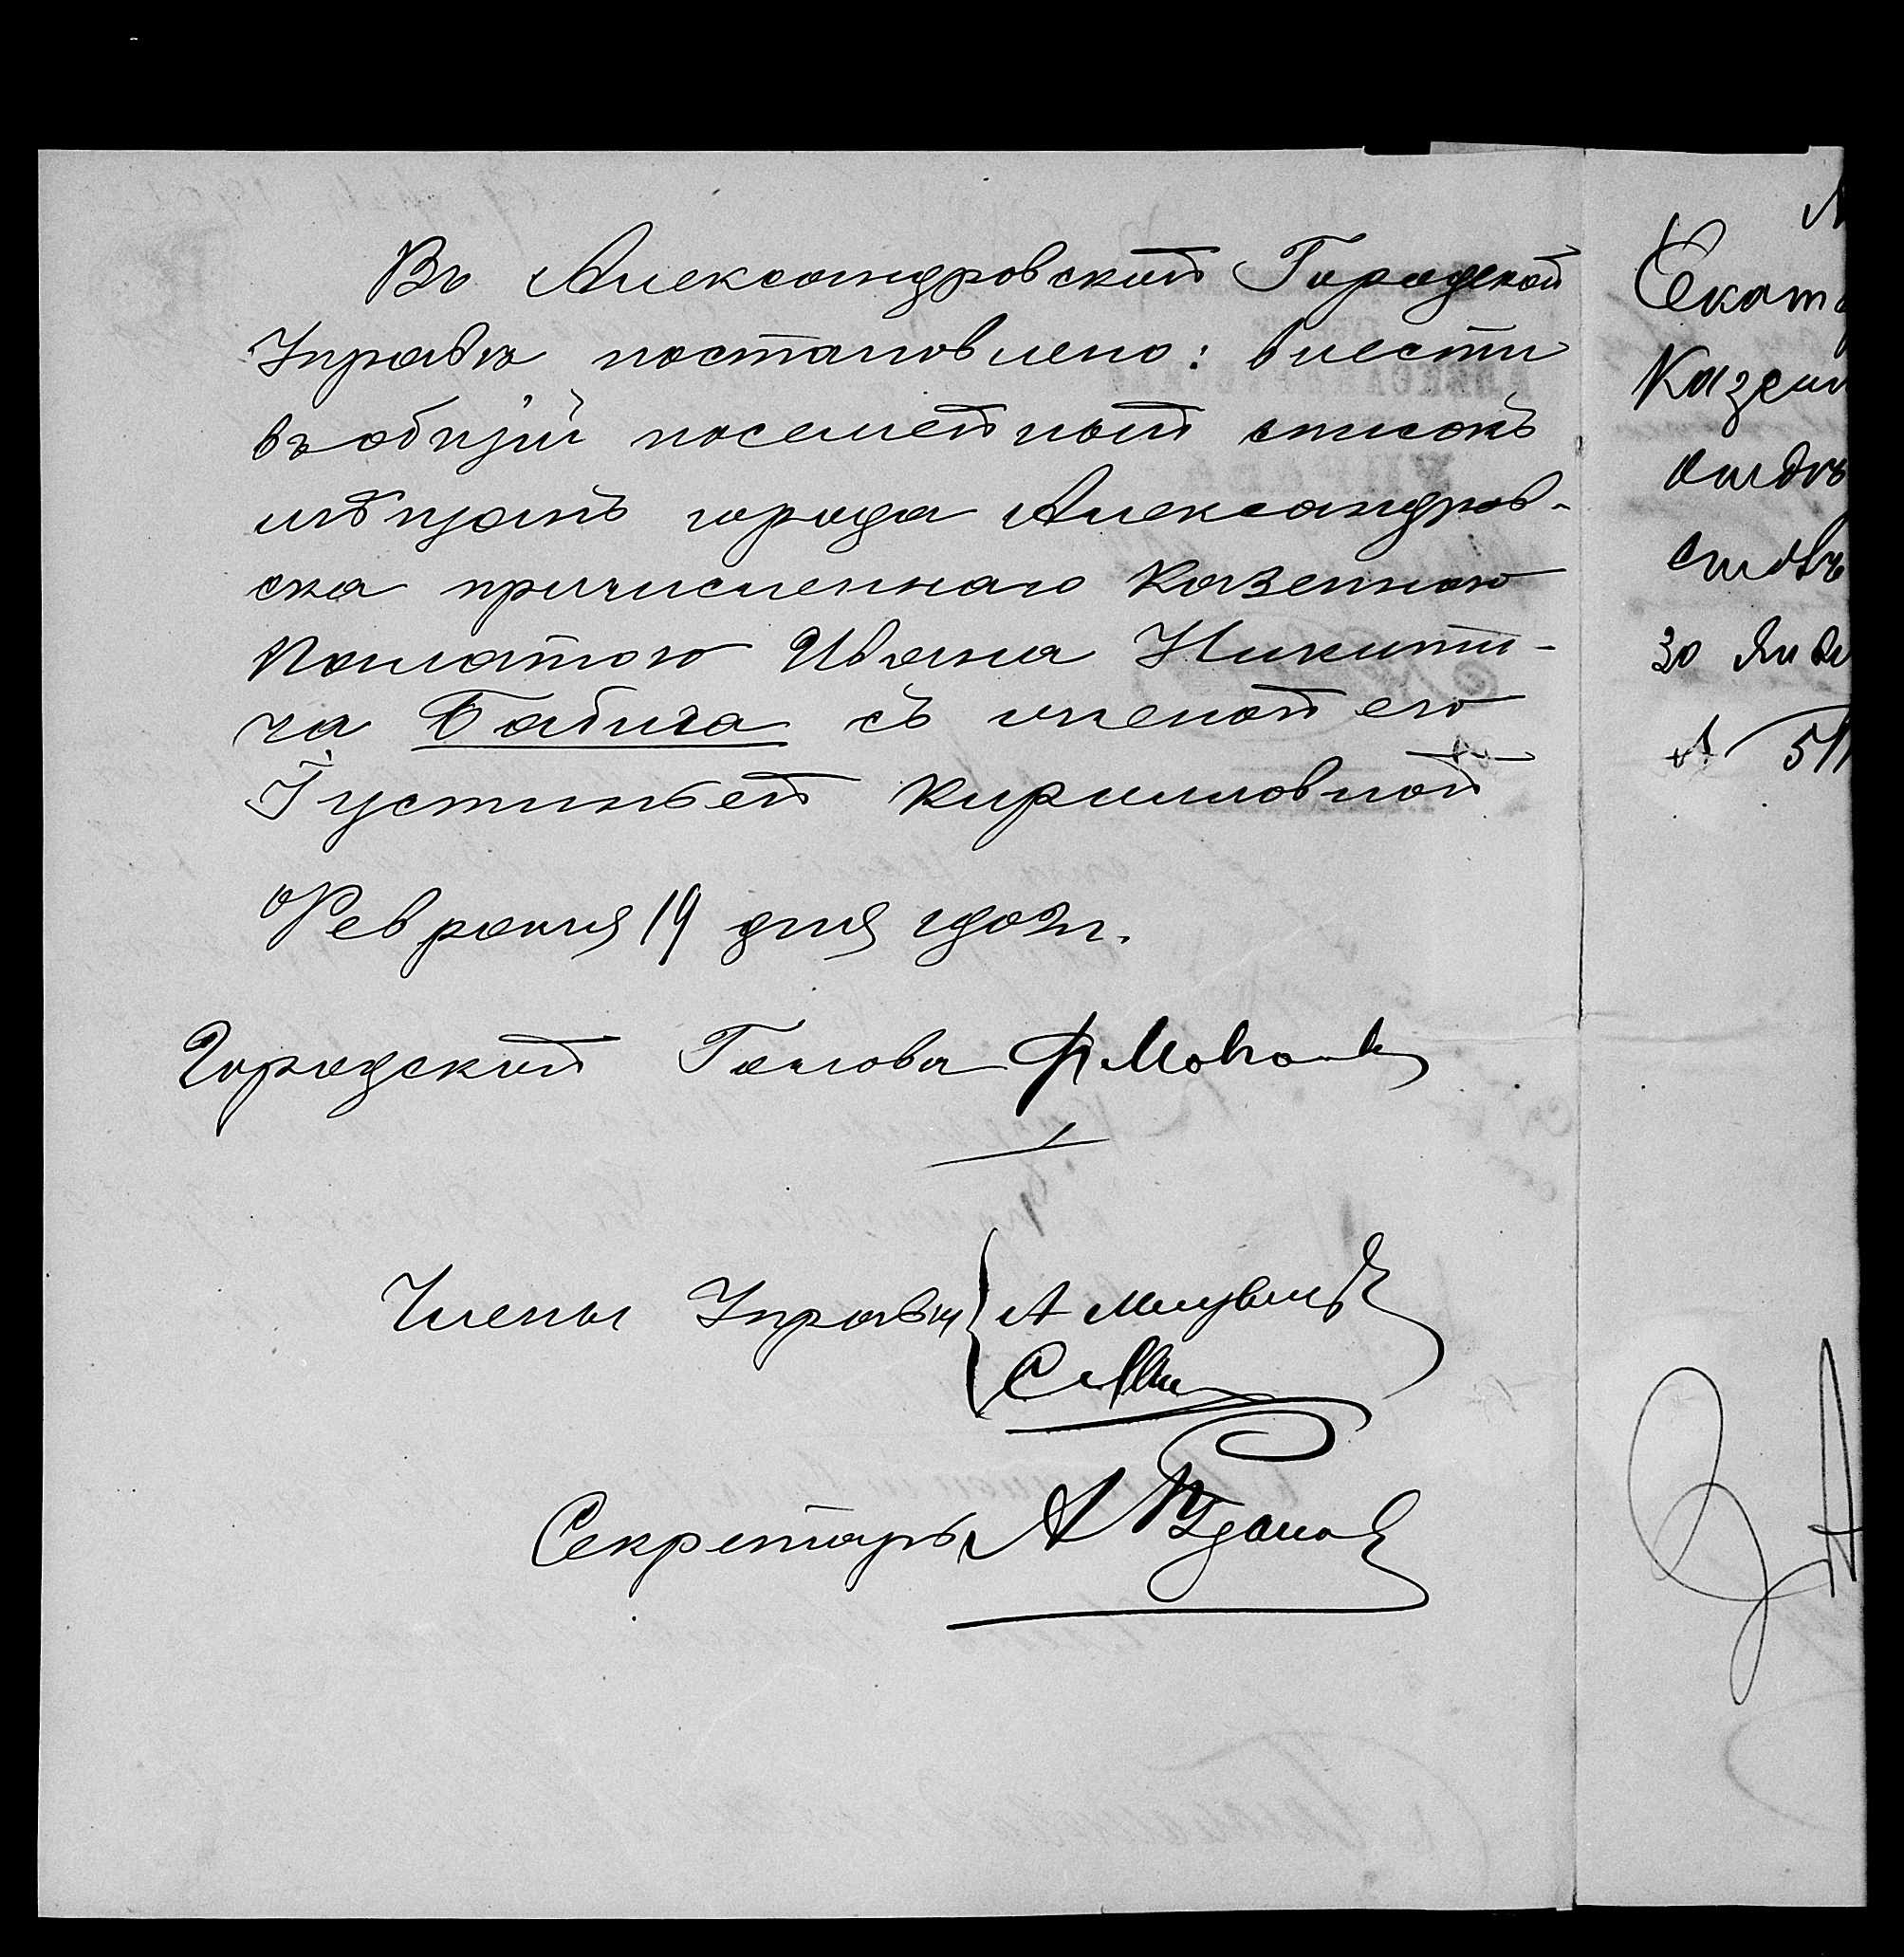 Въ Александровской Городской
Управѣ постановлено: внести
въ общій посемейный списокъ
мѣщанъ города Александров-
ска причисленнаго Казенною
Палатою Ивана Никити-
ча Бабича съ женой его
Іустиньей Кирилловной
Февраля 19 дня 1902 г.
Городской Голова
Члены Управы
Секретарь А
Екат
Казен
30 Янв